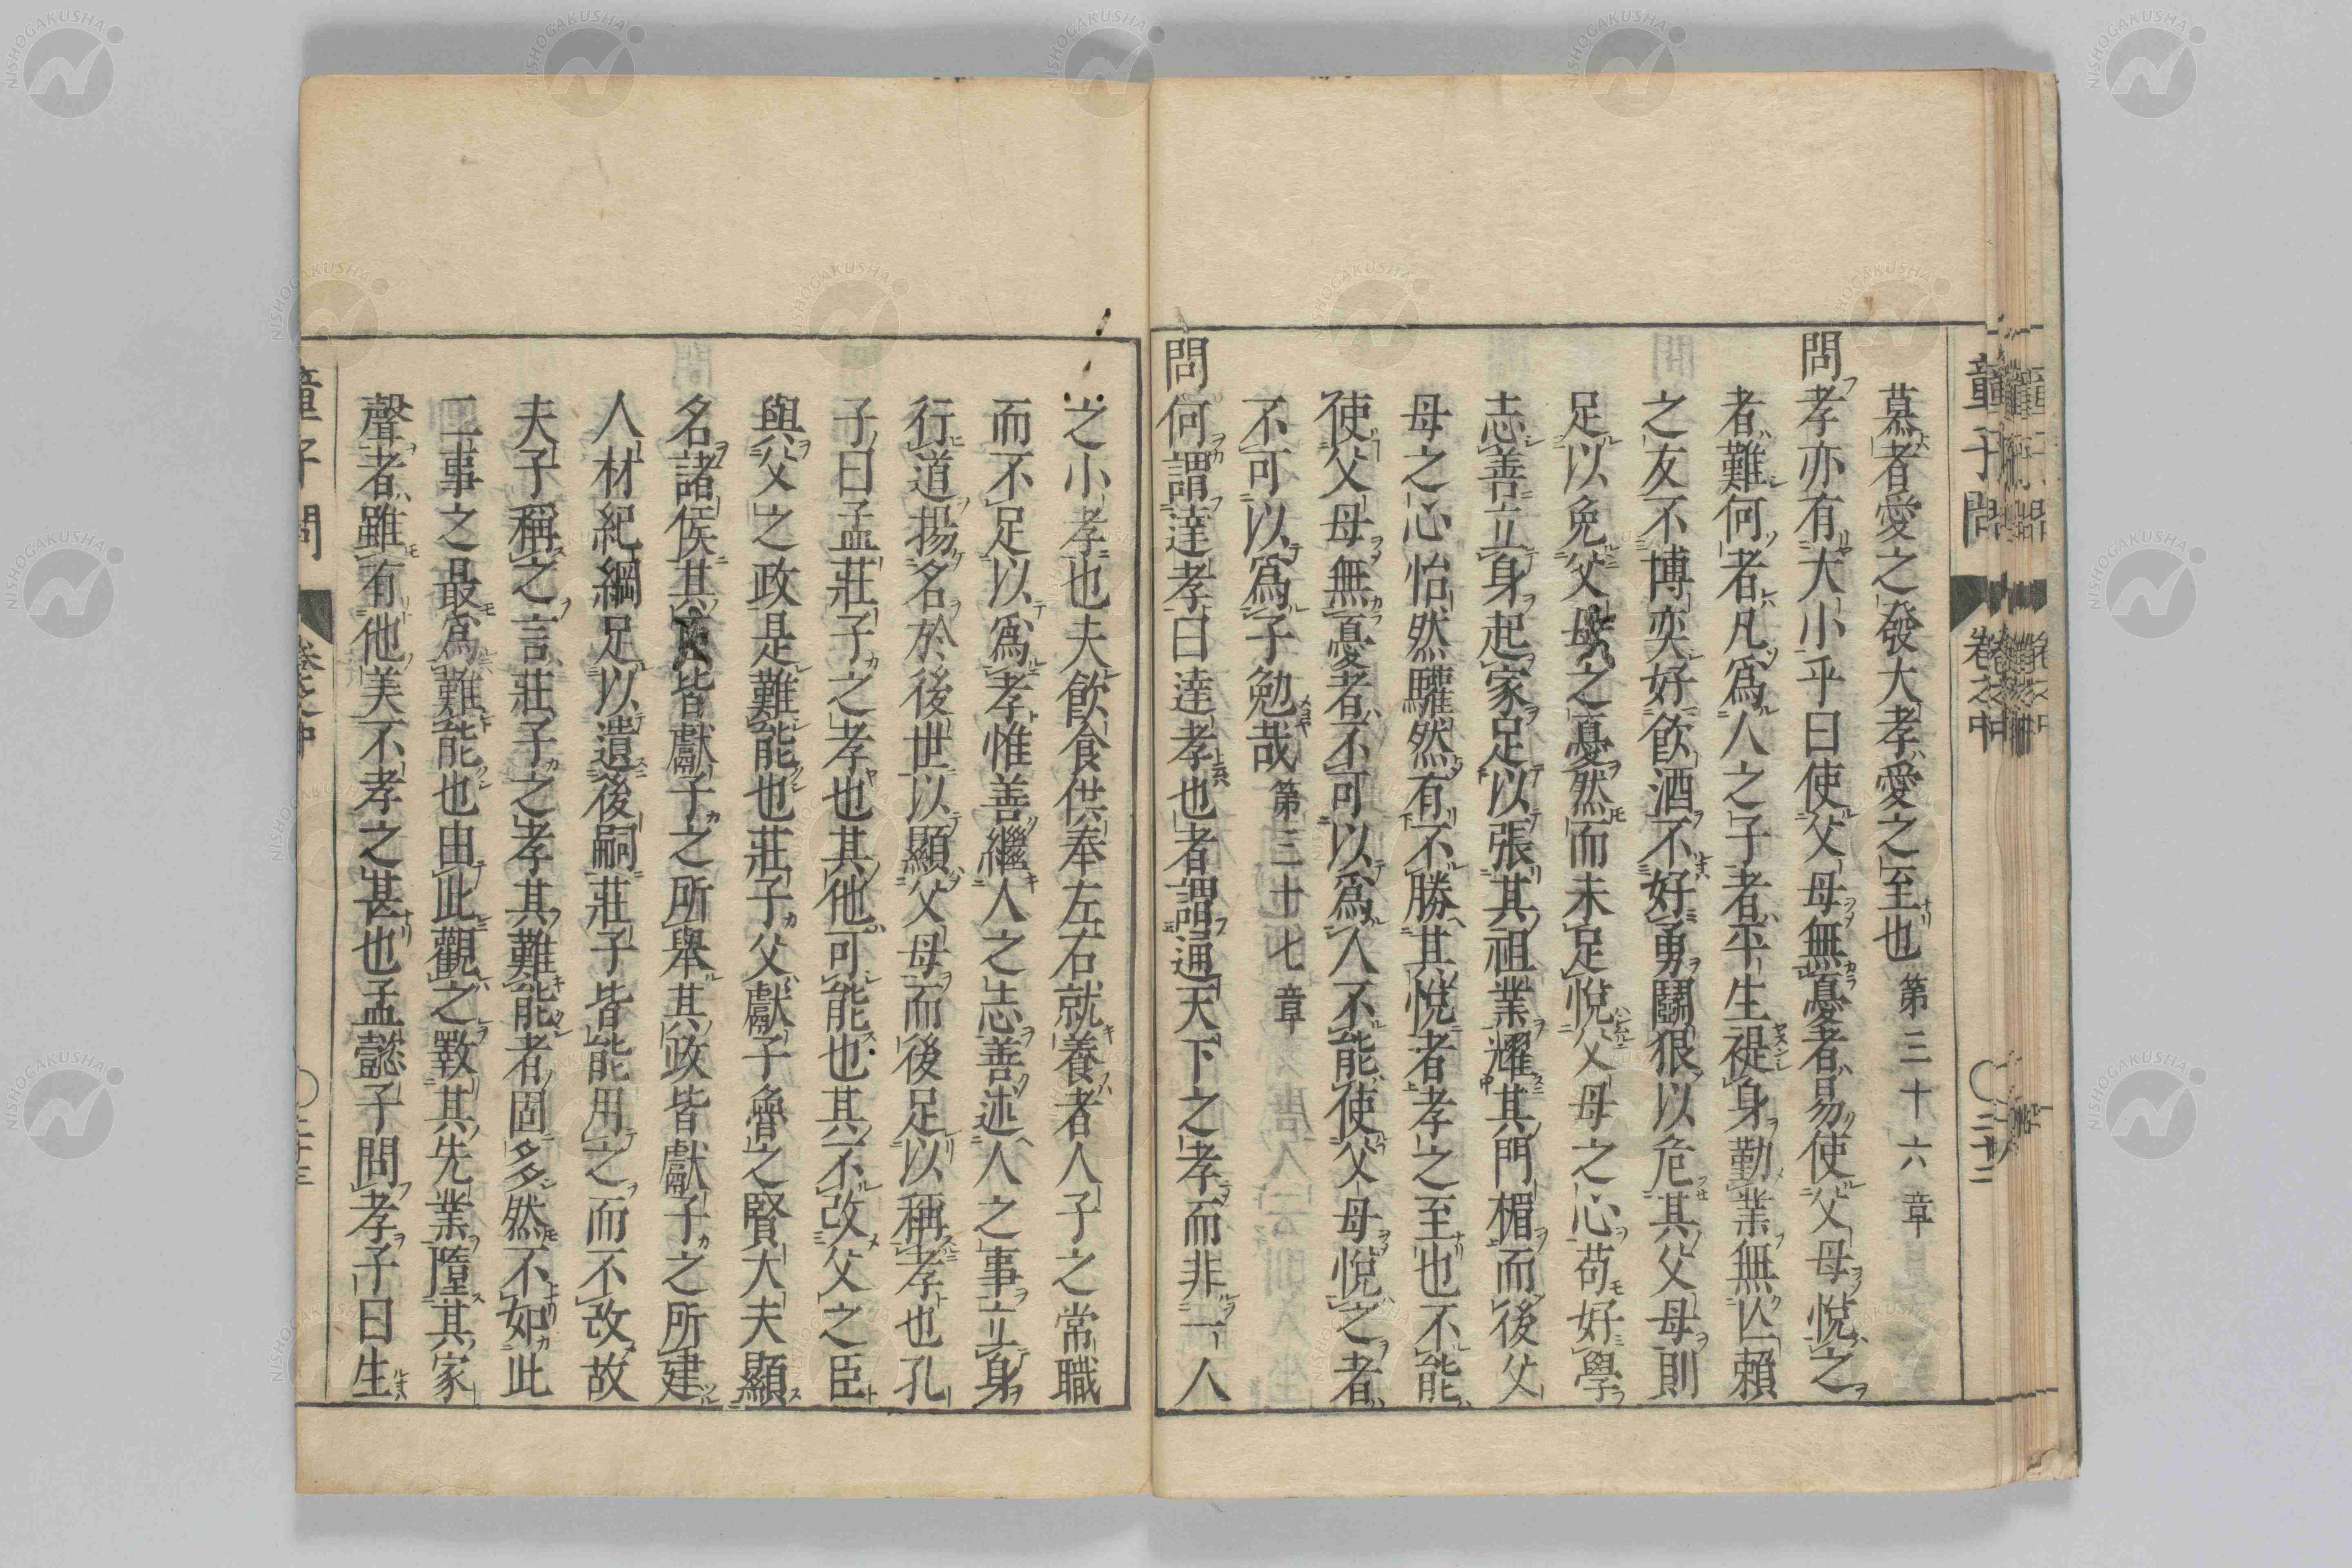 童子問 卷之中 二十二
慕者愛之發大孝愛之至也 第三十六章
問孝亦有大小乎曰使父母無憂者易使父母悅之
者難何者凡爲人之子者平生禔身勤業無仏賴
之友不博奕好飮酒不好勇鬪狠以危其父母則
足以免父母之憂然而未足悅父母之心苟好學
志善立身起家足以張其祖業耀其門楣而後父
母之心怡然驩然有不勝其悅者孝之至也不能
使父母無憂者不可以爲人不能使父母悅之者
不可以爲子勉哉 第三十七章
問何謂達孝曰達孝也者謂通天下之孝而非一人
之小孝也夫飮食供奉左右就養者人子之常職
而不足以爲孝惟善繼人之志善述人之事立身
行道揚名於後世以顯父母而後足以稱孝也孔
子曰孟莊子之孝也其他可能也其不改父之臣
與父之政是難能也莊子父獻子魯之賢大夫顯
名諸侯其皆獻子之所擧其政皆獻子之所建
人材紀綱足以遺後嗣莊子皆能用之而不改故
夫子稱之言莊子之孝其難能者固多然不如此
二事之最爲難能也由此觀之斁其先業墮其家
聲者雖有他美不孝之甚也孟懿子問孝子曰生
童子問 卷之中 二十三
NISHOGAKUSHA